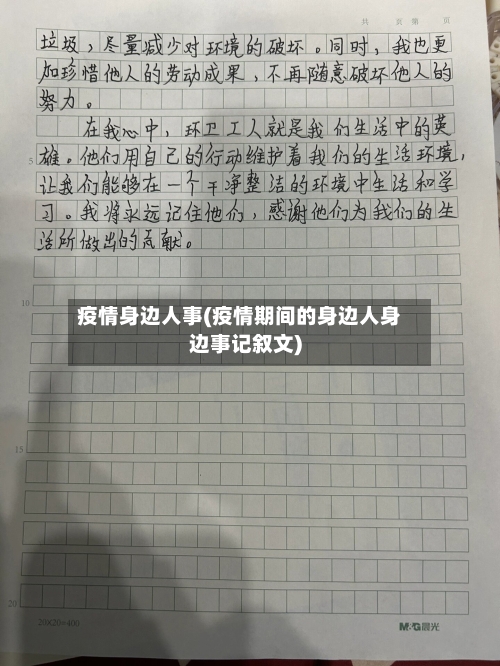 共 页 第 页
垃圾，尽量减少对环境的破坏。同时，我也更
加珍惜他人的劳动成果，不再随意破坏他人的
努力。
在我心中，环卫工人就是我们生活中的英
5
雄。他们用自己的行动维护着我们的生活环境，
让我们能够在一个干净整洁的环境中生活和学
习。我将永远记住他们，感谢他们为我们的生
活所做出的贡献。
10
疫情身边人事(疫情期间的身边人身
边事记叙文)
15
20
20x20=400
M&G晨光